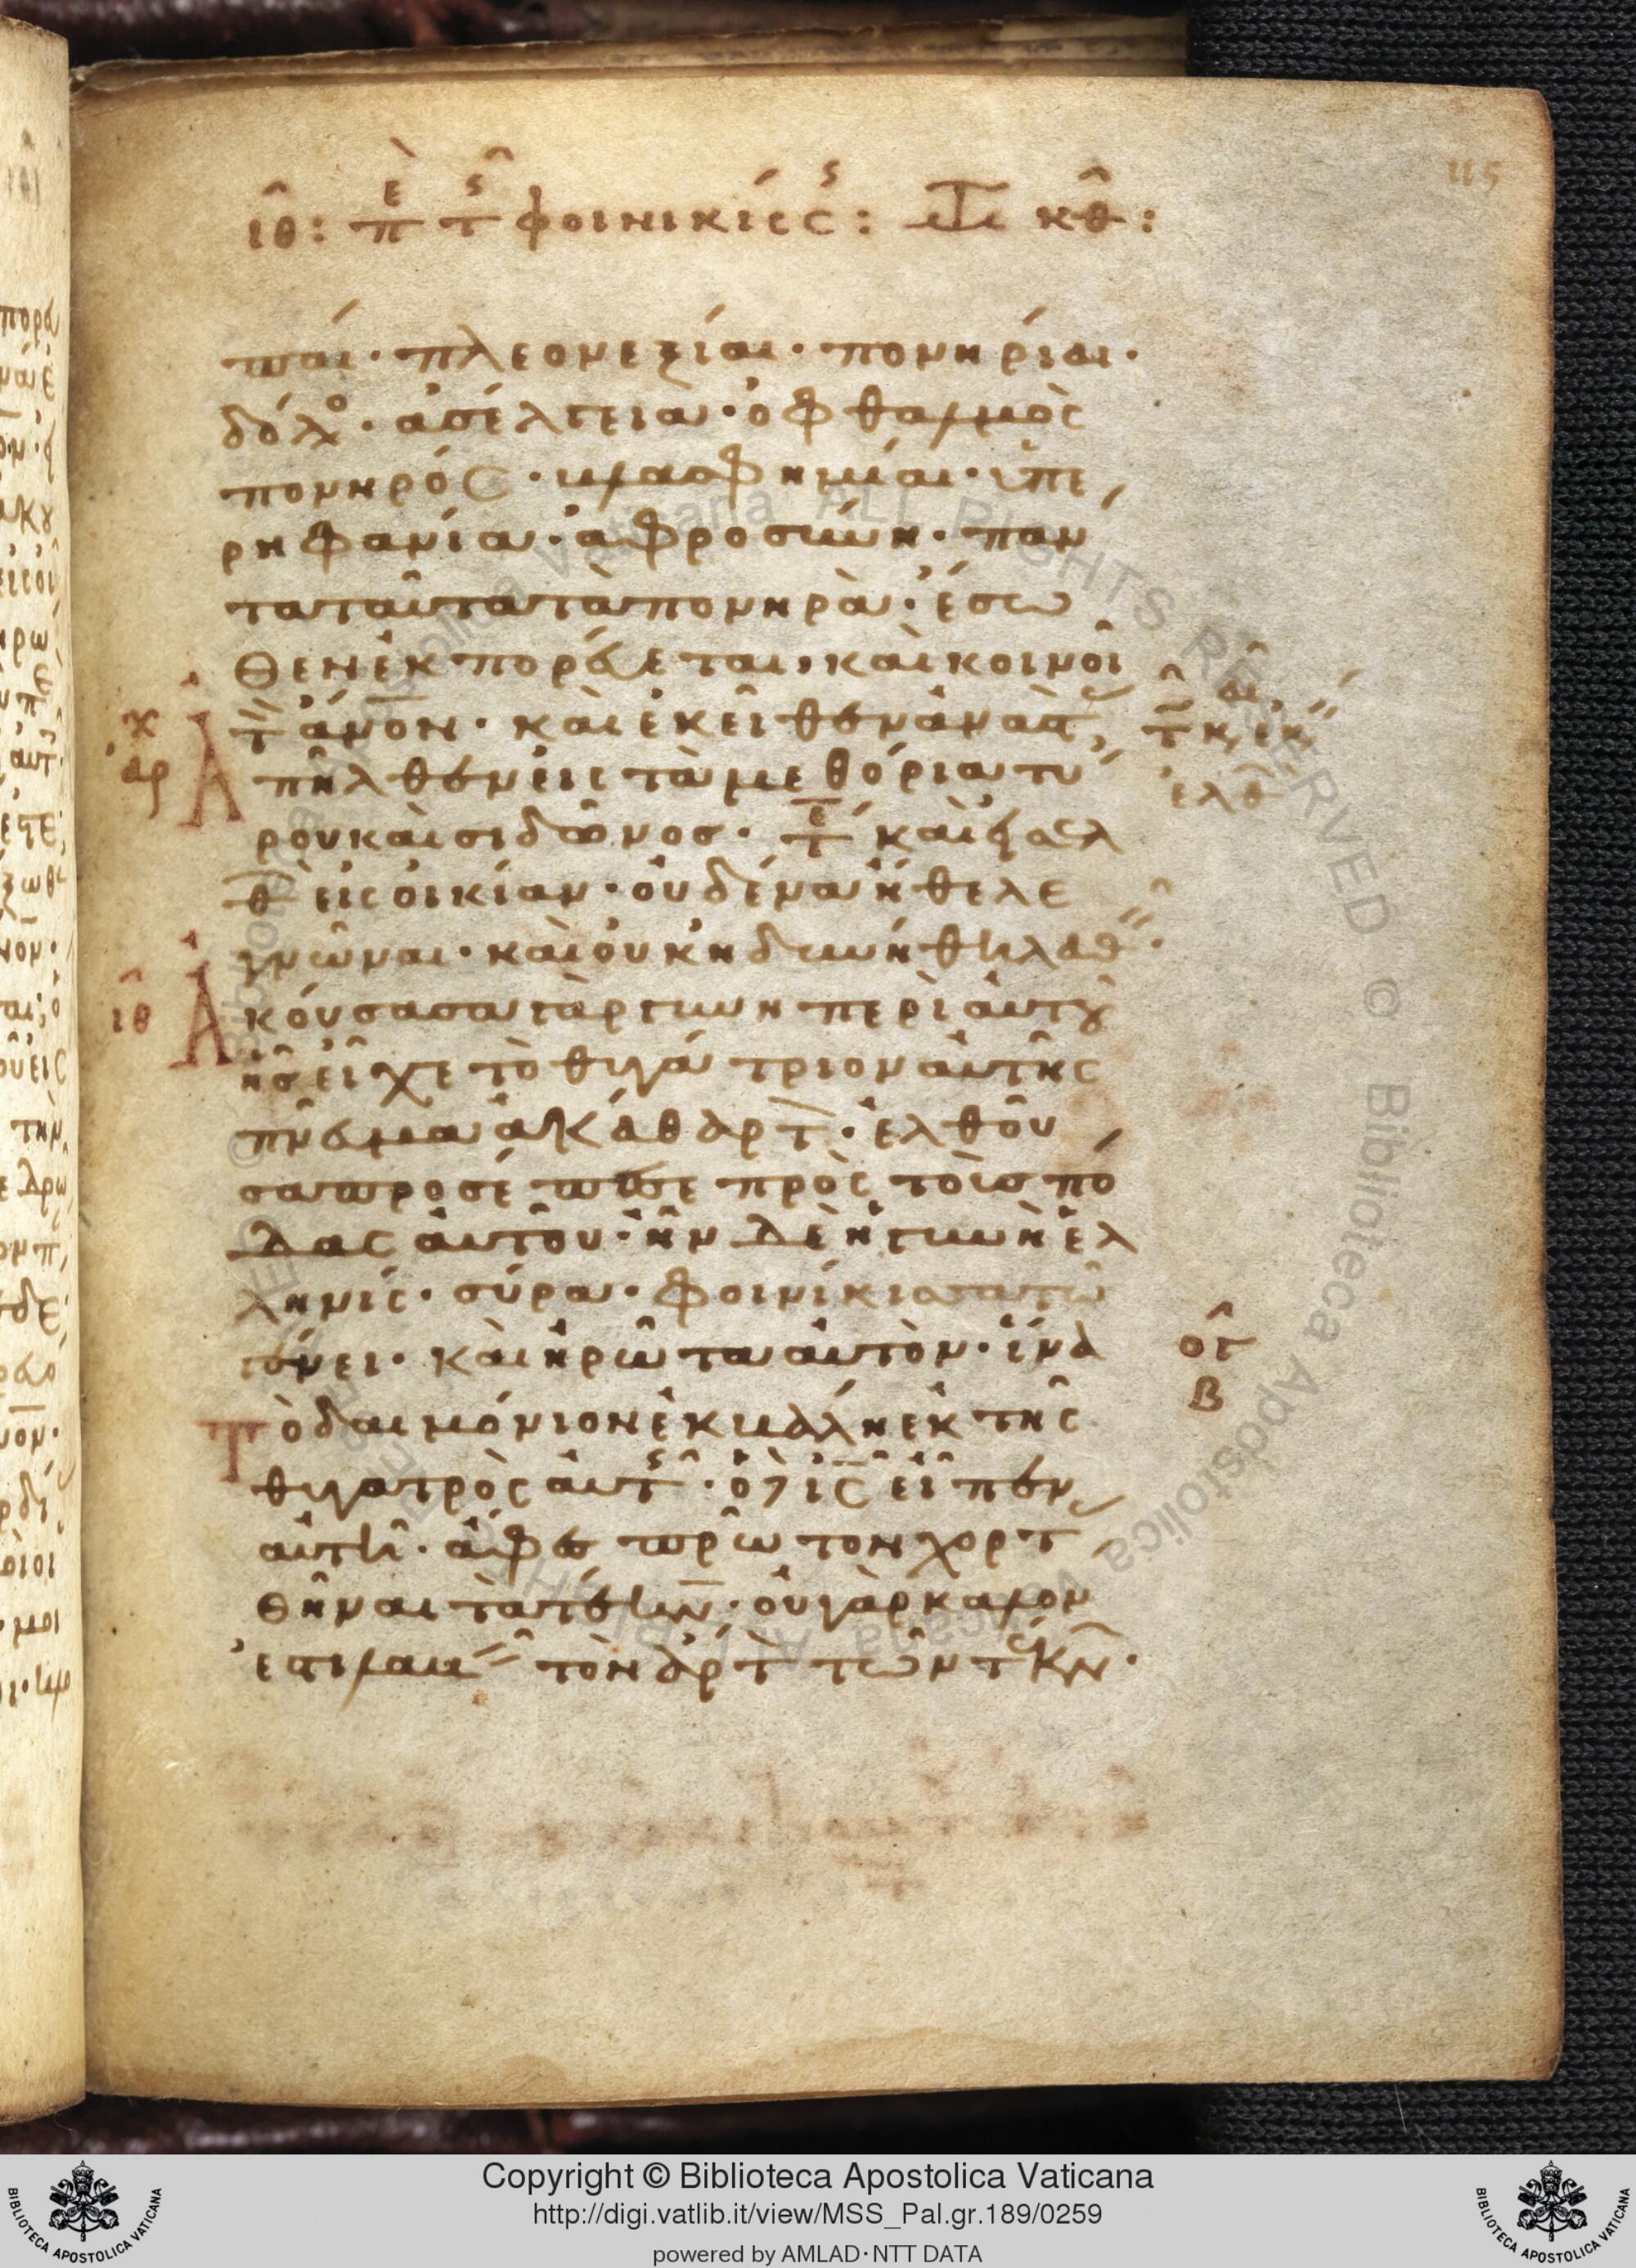 115
ιθ: πε τς φοινικίσς: κθ:
παί· πλεονεξίαι· πονηρίαι·
δόλο· ἀσέλγεια· ὀφθαλμὸς
πονηρός· βλασφημίαι· ὑπε
ρηφανία· ἀφροσύνη· πάν
τα ταῦτα τὰ πονηρὰ· ἔσω
θεν ἐκπορεύεται, καὶ κοινοῖ
τ ἀνον· καὶ ἐκεῖθεν ἀναστ
ἀπῆλθεν εἰς τὰ μεθόρια τύ
ρου καὶ σιδῶνος· τε καὶ εἰσελ
θ εἰς οἰκίαν· οὐδένα ἤθελε
γνῶναι· καὶ οὐκ ἠδυνήθη λαθ·
ἀκούσασα γὰρ γυνὴ περὶ αὐτοῦ
ἧς εἶχε τὸ θυγάτριον αὐτῆς
πνεῦμα ἀκάθαρτ· ἐλθοῦ
σα προσέπεσε πρὸς τοὺς πό
δας αὐτοῦ· ἦν δὲ ἡ γυνὴ ἑλ
ληνίς· σύρα· φοινίκισσα τῶ
γένει· καὶ ἠρώτα αὐτὸν· ἵνα
τὸ δαιμόνιον ἐκβάλη ἐκ τῆς
θυγατρὸς αὐτς· ὁ δὲ ις εἶπεν
αὐτῆ· ἄφες πρῶτον χορτ
θῆναι τὰ τέκν· οὐ γὰρ καλον
ἐστι λαβ τὸν ἄρτ τῶν τέκν·
χ
αρ
ιθ
τ κ
ἐλθ
οτ
β
© Biblioteca Apostolica Vaticana ALL RIGHTS RESERVED
Copyright © Biblioteca Apostolica Vaticana
http://digi.vatlib.it/view/MSS_Pal.gr.189/0259
powered by AMLAD·NTT DATA
BIBLIOTECA APOSTOLICA VATICANA
BIBLIOTECA APOSTOLICA VATICANA